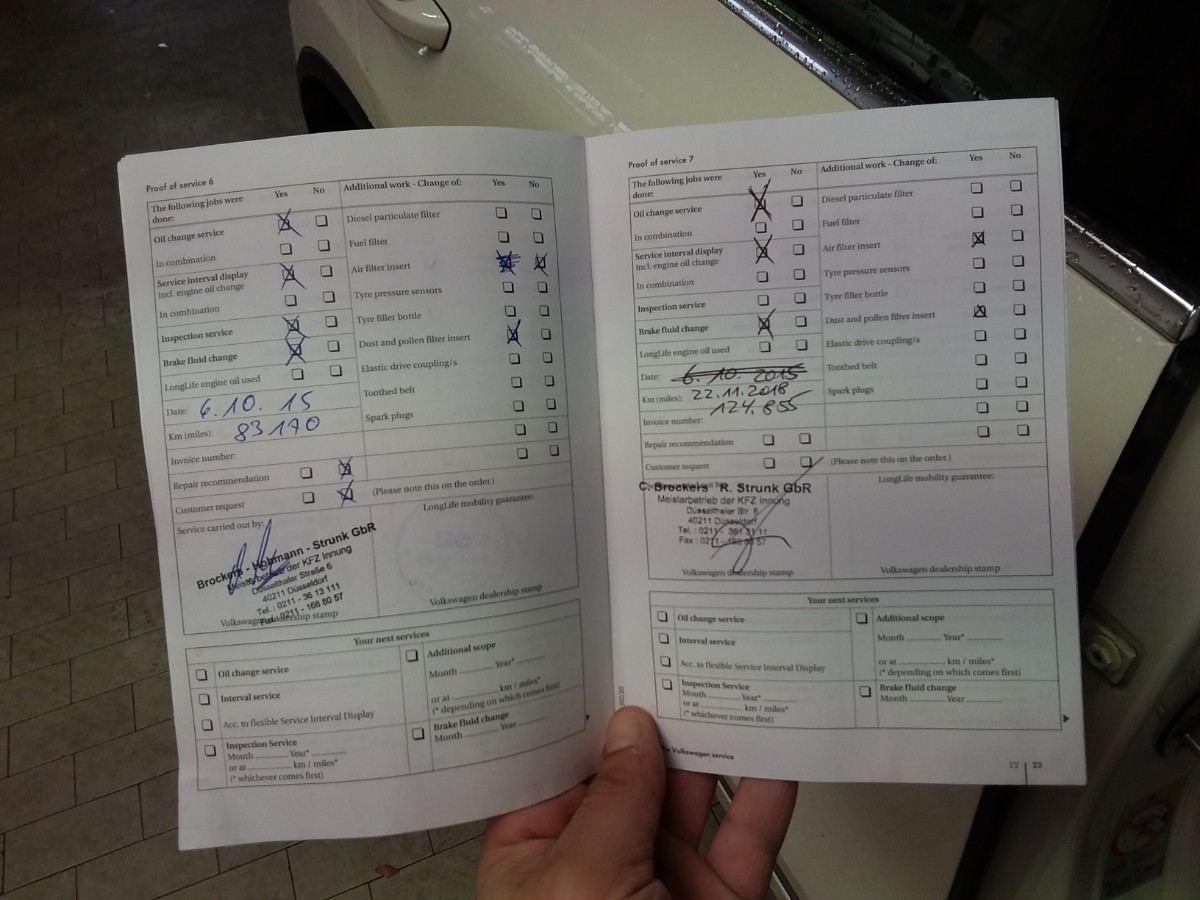 Proof of service 6
The following jobs were done: Yes No
Oil change service
In combination
Service interval display
incl. engine oil change
In combination
Inspection service
Brake fluid change
LongLife engine oil used
Date: 6.10.15
Km (miles): 83170
Invoice number:
Repair recommendation
Customer request
(Please note this on the order.)
Additional work - Change of: Yes No
Diesel particulate filter
Fuel filter
Air filter insert
Tyre pressure sensors
Tyre filler bottle
Dust and pollen filter insert
Elastic drive coupling/s
Toothed belt
Spark plugs
Service carried out by:
Meisterbetrieb der KFZ Innung
Düsselthaler Straße 6
40211 Düsseldorf
Tel.: 0211 - 36 13 111
Fax: 0211 - 166 80 57
Volkswagen dealership stamp
LongLife mobility guarantee:
Volkswagen dealership stamp
Your next services
Oil change service
Interval service
Acc. to flexible Service Interval Display
Inspection Service
Month Year*
or at km / miles*
(* whichever comes first)
Additional scope
Month Year*
or at km / miles*
(* depending on which comes first)
Brake fluid change
Month Year
Proof of service 7
The following jobs were done: Yes No
Oil change service
In combination
Service interval display
incl. engine oil change
In combination
Inspection service
Brake fluid change
LongLife engine oil used
Date: 6.10.2015
22.11.2018
Km (miles): 124.855
Invoice number:
Repair recommendation
Customer request
(Please note this on the order.)
Additional work - Change of: Yes No
Diesel particulate filter
Fuel filter
Air filter insert
Tyre pressure sensors
Tyre filler bottle
Dust and pollen filter insert
Elastic drive coupling/s
Toothed belt
Spark plugs
C. Brockers R. Strunk GbR
Meisterbetrieb der KFZ Innung
Düsselthaler Str. 6
40211 Düsseldorf
Tel.: 0211 - 361 31 11
Fax: 0211
Volkswagen dealership stamp
LongLife mobility guarantee:
Volkswagen dealership stamp
Your next services
Oil change service
Interval service
Acc. to flexible Service Interval Display
Inspection Service
Month Year*
or at km / miles*
(* whichever comes first)
Additional scope
Month Year*
or at km / miles*
(* depending on which comes first)
Brake fluid change
Month Year
The Volkswagen service
22 | 23